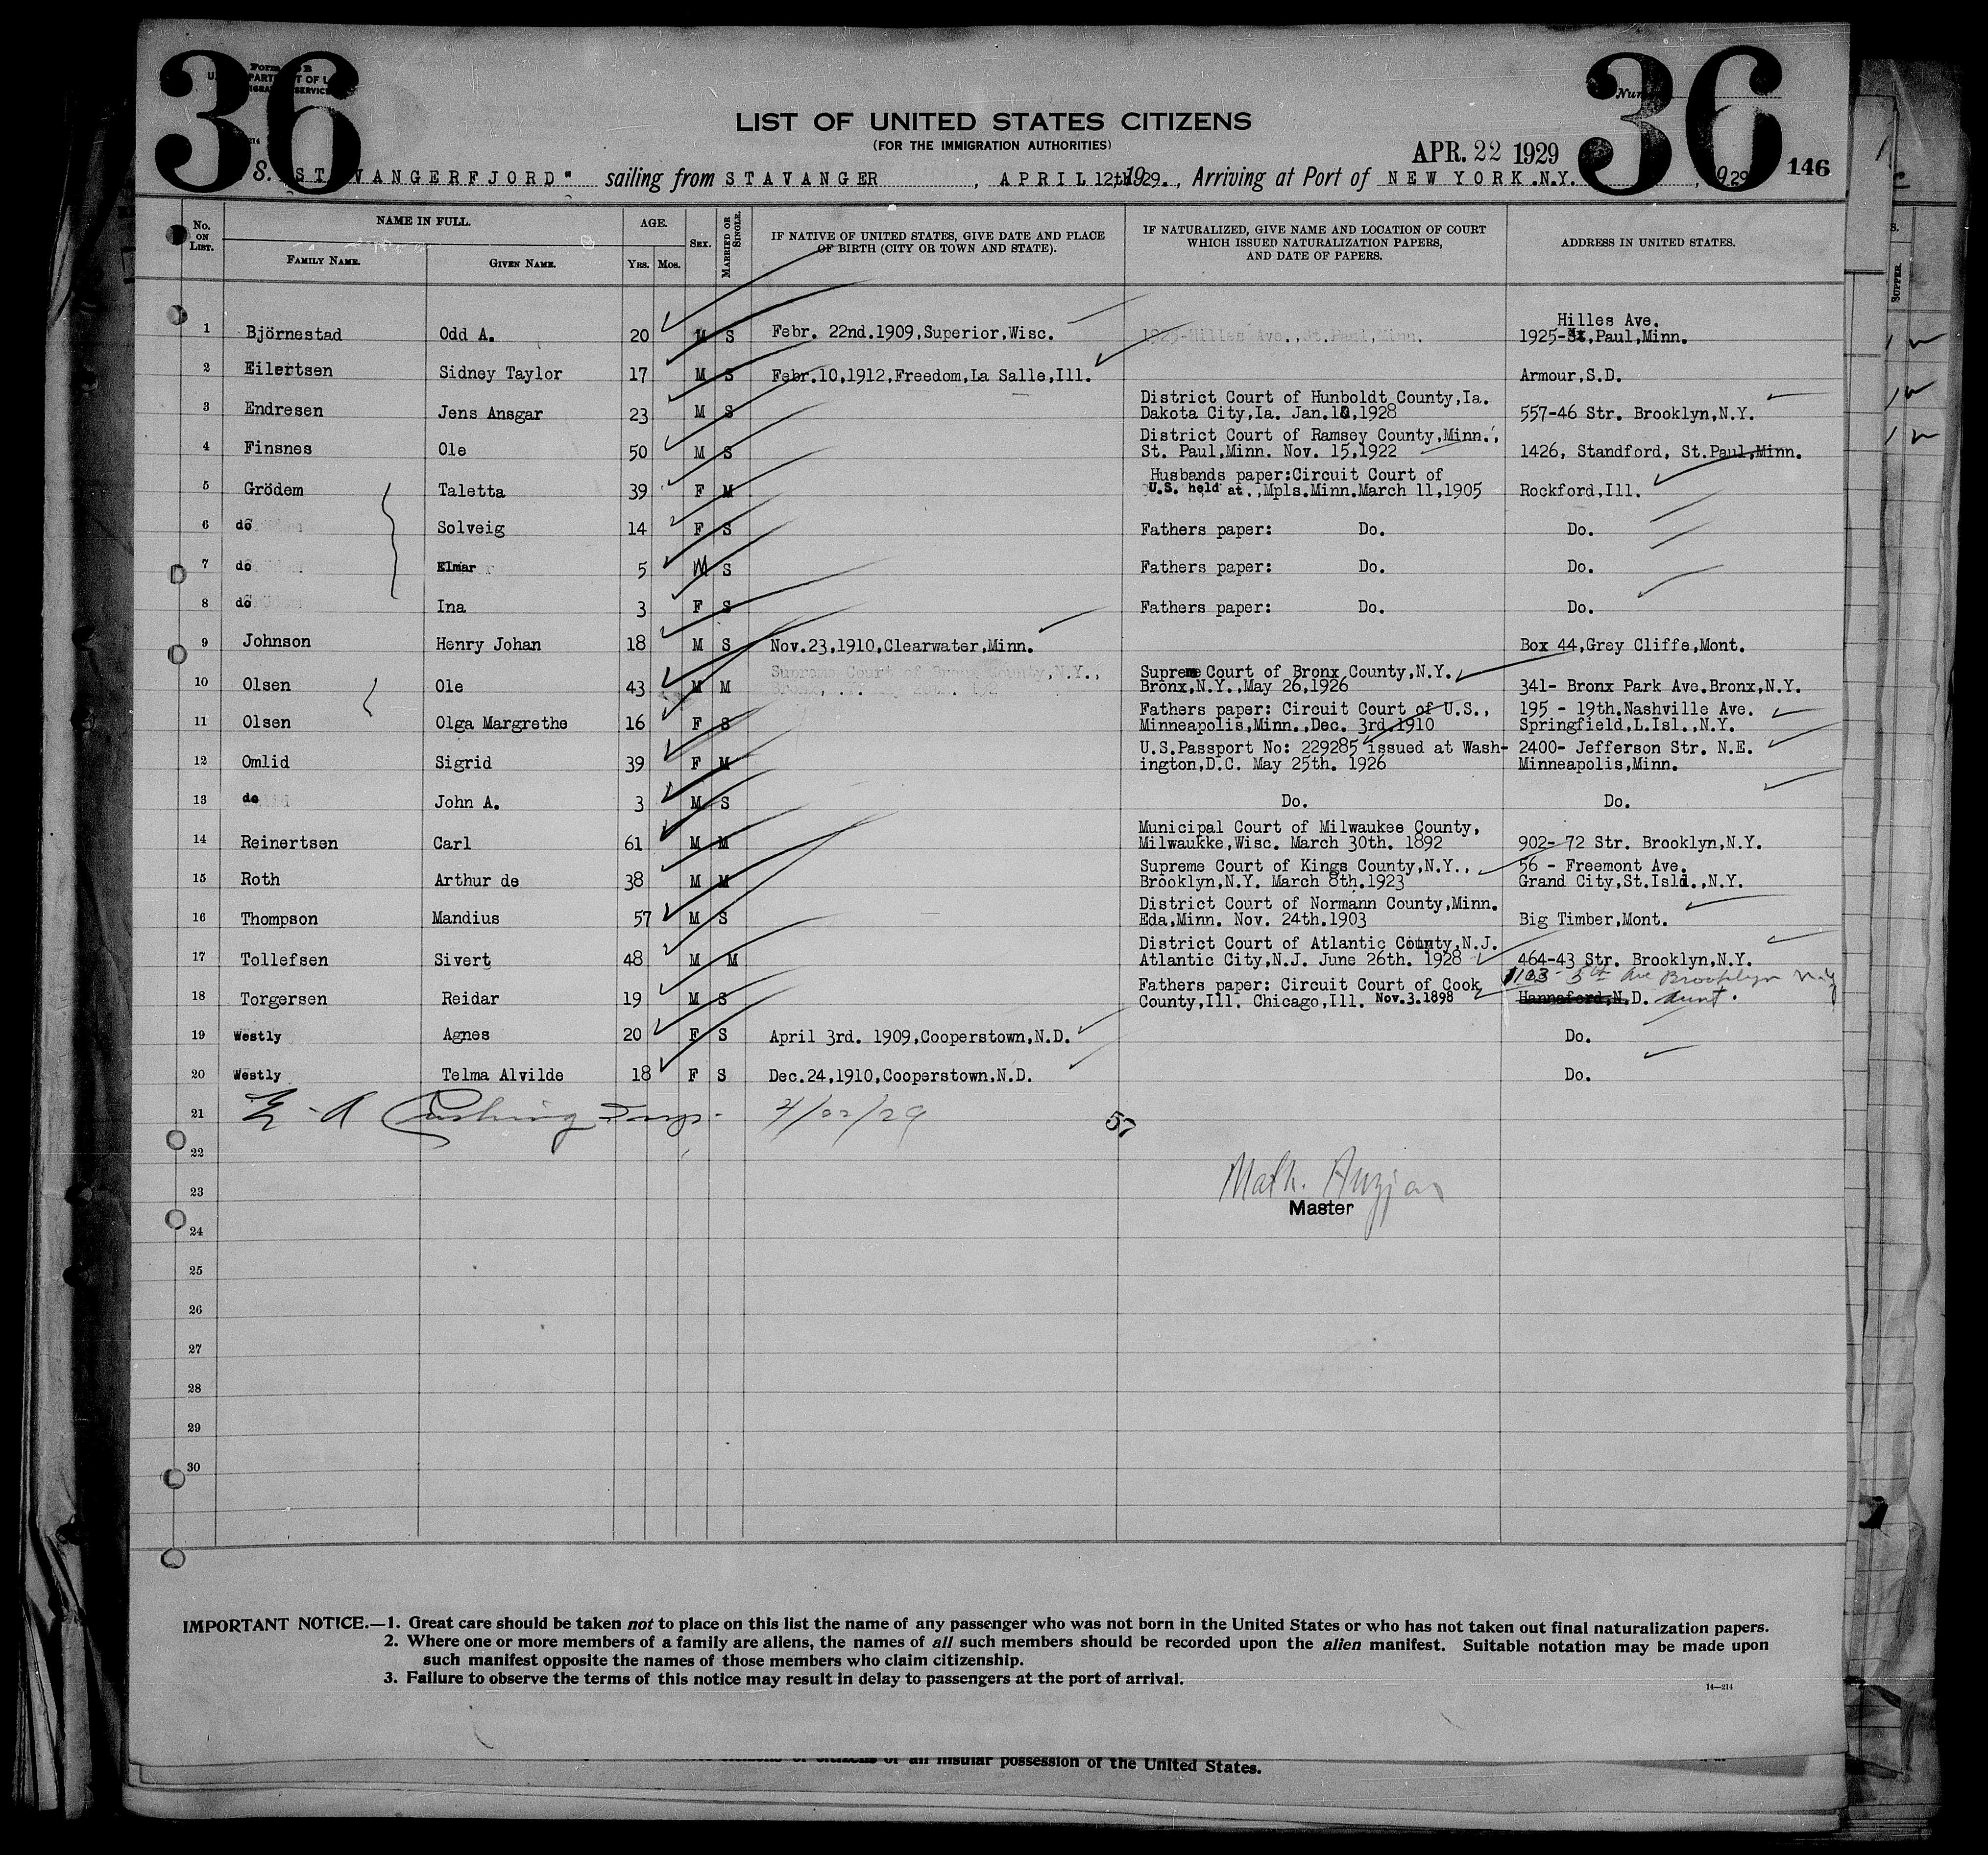 36
Form B
36
LIST OF UNITED STATES CITIZENS
(FOR THE IMMIGRATION AUTHORITIES)
APR. 22 1929
S. "STAVANGERFJORD" sailing from STAVANGER, APRIL 12th 1929., Arriving at Port of NEW YORK.N.Y. 1929
146
No. ON LIST.
NAME IN FULL.
FAMILY NAME.
GIVEN NAME.
AGE.
YRS.
MOS.
SEX.
MARRIED OR SINGLE.
IF NATIVE OF UNITED STATES, GIVE DATE AND PLACE
OF BIRTH (CITY OR TOWN AND STATE).
IF NATURALIZED, GIVE NAME AND LOCATION OF COURT
WHICH ISSUED NATURALIZATION PAPERS,
AND DATE OF PAPERS.
ADDRESS IN UNITED STATES.
Hilles Ave.
1 Björnestad Odd A. 20 M S Febr. 22nd.1909,Superior,Wisc. 1925-St,Paul,Minn.
2 Eilertsen Sidney Taylor 17 M S Febr.10,1912,Freedom,La Salle,Ill. Armour,S.D.
District Court of Hunboldt County,Ia.
3 Endresen Jens Ansgar 23 M S Dakota City,Ia. Jan.10,1928 557-46 Str. Brooklyn,N.Y.
District Court of Ramsey County,Minn.,
4 Finsnes Ole 50 M S St. Paul,Minn. Nov. 15,1922 1426, Standford, St.Paul,Minn.
Husbands paper:Circuit Court of
5 Grödem Taletta 39 F M U.S. held at.,Mpls.Minn.March 11,1905 Rockford,Ill.
6 do Solveig 14 F S Fathers paper: Do. Do.
7 do Elmar 5 M S Fathers paper: Do. Do.
8 do Ina 3 F S Fathers paper: Do. Do.
9 Johnson Henry Johan 18 M S Nov.23,1910,Clearwater,Minn. Box 44,Grey Cliffe,Mont.
Supreme Court of Bronx County,N.Y.
10 Olsen Ole 43 M M Bronx,N.Y.,May 26,1926 341- Bronx Park Ave.Bronx,N.Y.
Fathers paper: Circuit Court of U.S., 195 - 19th.Nashville Ave.
11 Olsen Olga Margrethe 16 F S Minneapolis,Minn.,Dec. 3rd.1910 Springfield,L.Isl.,N.Y.
U.S.Passport No: 229285 issued at Wash- 2400- Jefferson Str. N.E.
12 Omlid Sigrid 39 F M ington,D.C. May 25th. 1926 Minneapolis,Minn.
13 do John A. 3 M S Do. Do.
Municipal Court of Milwaukee County,
14 Reinertsen Carl 61 M M Milwaukke,Wisc. March 30th. 1892 902- 72 Str. Brooklyn,N.Y.
Supreme Court of Kings County,N.Y., 56 - Freemont Ave.
15 Roth Arthur de 38 M M Brooklyn,N.Y. March 8th.1923 Grand City,St.Isld.,N.Y.
District Court of Normann County,Minn.
16 Thompson Mandius 57 M S Eda,Minn. Nov. 24th.1903 Big Timber,Mont.
District Court of Atlantic County,N.J.
17 Tollefsen Sivert 48 M M Atlantic City,N.J. June 26th. 1928 464-43 Str. Brooklyn,N.Y.
Fathers paper: Circuit Court of Cook 1123 - 5th Ave Brooklyn N.Y
18 Torgersen Reidar 19 M S County,Ill. Chicago,Ill. Nov.3.1898 Hannaford,N.D. Aunt.
19 Westly Agnes 20 F S April 3rd. 1909,Cooperstown,N.D. Do.
20 Westly Telma Alvilde 18 F S Dec.24,1910,Cooperstown,N.D. Do.
21 E. A Cushing Insp. 4/22/29
57
22
23
Master
24
25
26
27
28
29
30
IMPORTANT NOTICE.—1. Great care should be taken not to place on this list the name of any passenger who was not born in the United States or who has not taken out final naturalization papers.
2. Where one or more members of a family are aliens, the names of all such members should be recorded upon the alien manifest. Suitable notation may be made upon
such manifest opposite the names of those members who claim citizenship.
3. Failure to observe the terms of this notice may result in delay to passengers at the port of arrival.
14—214
an insular possession of the United States.